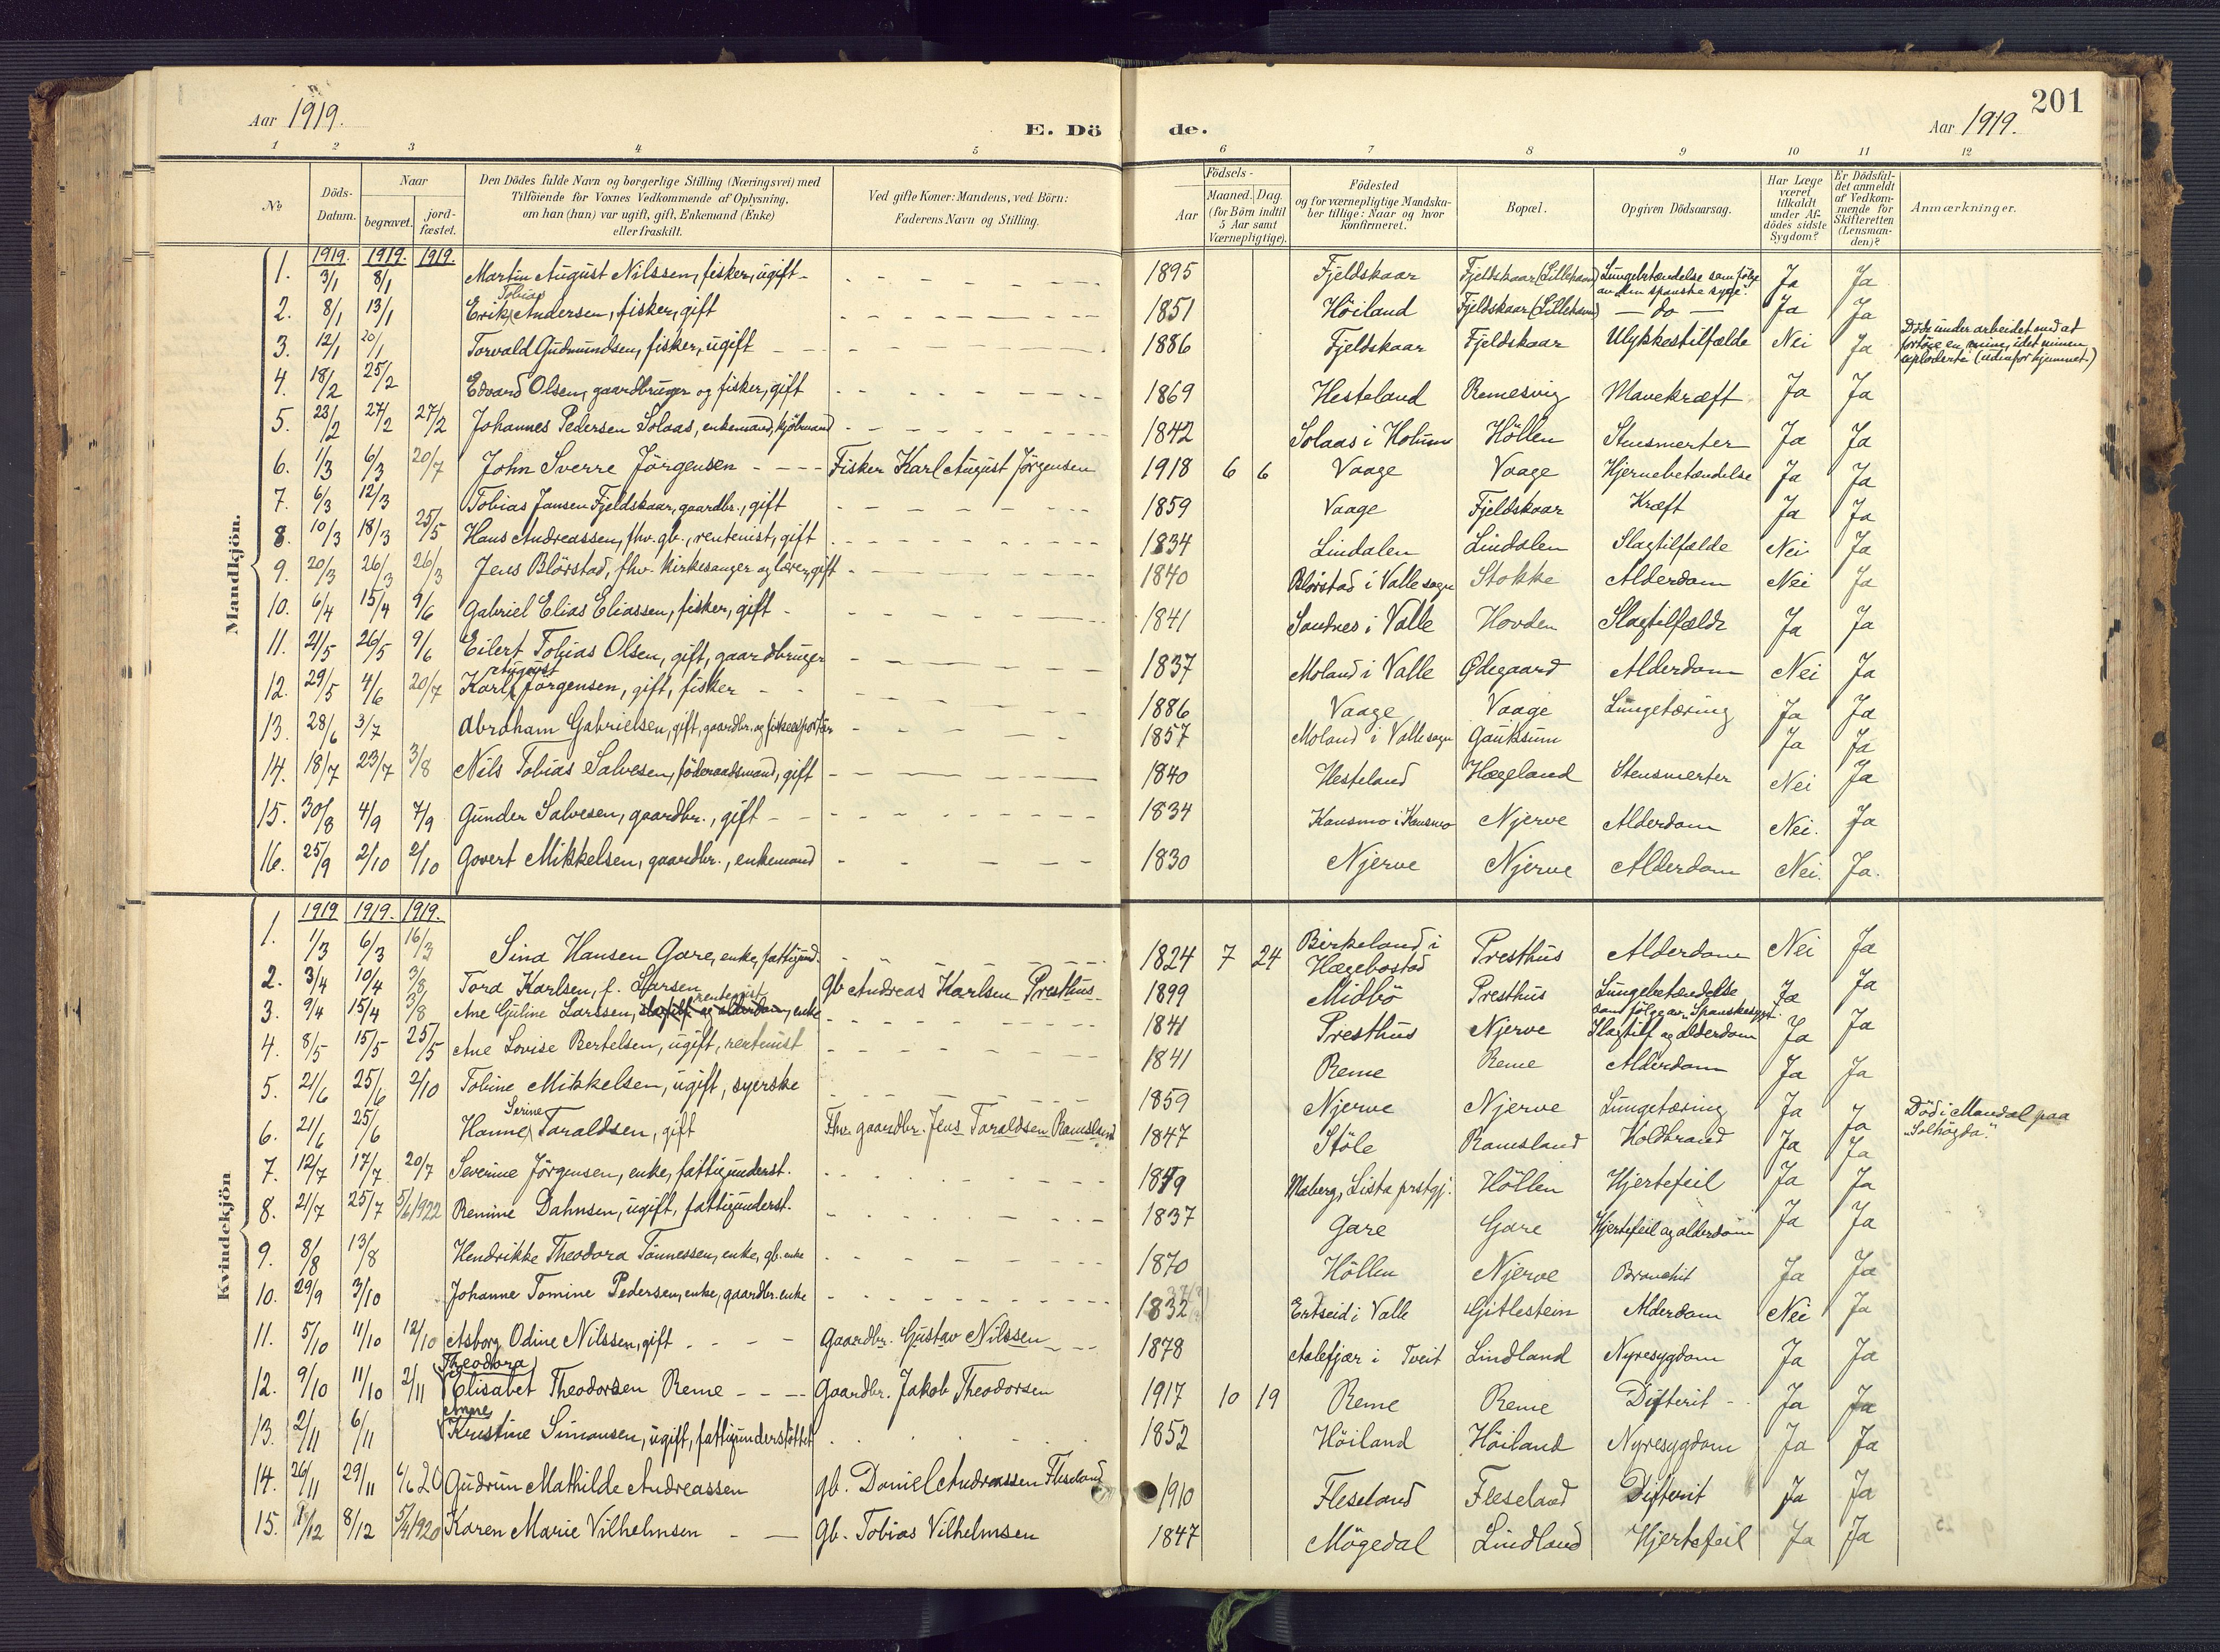 201
Aar 1919.
E. Dö de.
Aar 1919.
1 2 3 4 5 6 7 8 9 10 11 12
No
Döds-Datum.
Naar
begravet.
jord-fæstet.
Den Dödes fulde Navn og borgerlige Stilling (Næringsvei) med
Tilföiende for Voxnes Vedkommende af Oplysning,
om han (hun) var ugift, gift, Enkemand (Enke)
eller fraskilt.
Ved gifte Koner: Mandens, ved Börn:
Faderens Navn og Stilling.
Födsels-
Aar
Maaned.
Dag.
(for Börn indtil
5 Aar samt
Værnepligtige).
Födested
og for værnepligtige Mandska-
ber tillige: Naar og hvor
konfirmeret.
Bopæl.
Opgiven Dödsaarsag.
Har Læge
været
tilkaldt
under Af-
dödes sidste
Sygdom?
Er Dödsfal-
det anmeldt
af Vedkom-
mende for
Skifteretten
(Lensman-
den)?
Anmærkninger.
Mandkjön.
1919. 1919. 1919.
1. 3/1 8/1 Martin August Nilssen, fisker, ugift 1895 Fjeldskaar Fjeldskaar (Lillehavn) Lungebetændelse som følge av "den spanske syge". Ja Ja
2. 8/1 13/1 Erik Tobias Andersen, fisker, gift 1851 Höiland Fjeldskaar (Lillehavn) - do - Ja Ja
3. 12/1 20/1 Torvald Gudmundsen, fisker, ugift 1886 Fjeldskaar Fjeldskaar Ulykkestilfælde Nei Ja Döde under arbeidet med at fortöie en mine, idet minen exploderte (utenfor hjemmet)
4. 18/2 25/2 Edvard Olsen, gaardbruger og fisker, gift 1869 Hesteland Remesvig Mavekræft Ja Ja
5. 23/2 27/2 27/2 Johannes Pedersen Solaas, enkemand, kjöbmand 1842 Solaas i Holum Höllen Stensmerter Ja Ja
6. 1/3 6/3 20/7 John Sverre Jörgensen Fisker Karl August Jörgensen 1918 6 6 Vaage Vaage Hjernebetændelse Ja Ja
7. 6/3 12/3 Tobias Jansen Fjeldskaar, gaardbr., gift 1859 Vaage Fjeldskaar Kræft Ja Ja
8. 10/3 18/3 25/5 Hans Andreassen, fhv. gb., rentenist, gift 1834 Lindalen Lindalen Slagtilfælde Nei Ja
9. 20/3 26/3 26/3 Jens Blörstad, fhv. kirkesanger og lærer, gift 1840 Blörstad i Valle sogn Stokke Alderdom Nei Ja
10. 6/4 15/4 9/6 Gabriel Elias Eliassen, fisker, gift 1841 Sandnes i Valle Hovden Slagtilfælde Ja Ja
11. 21/5 26/5 9/6 Eilert Tobias Olsen, gift, gaardbruger 1837 Moland i Valle Ødegaard Alderdom Nei Ja
12. 29/5 4/6 20/7 Karl August Jörgensen, gift, fisker 1886 Vaage Vaage Lungetæring Ja Ja
13. 28/6 3/7 Abraham Gabrielsen, gift, gaardbr. og fiskeexportör 1857 Moland i Valle sogn Gauksum Ja Ja
14. 18/7 23/7 3/8 Nils Tobias Salvesen, föderaadsmand, gift 1840 Hesteland Hægeland Stensmerter Nei Ja
15. 30/8 4/9 7/9 Gunder Salvesen, gaardbr., gift 1834 Konsmo i Konsmo Njerve Alderdom Nei. Ja
16. 25/9 2/10 2/10 Govert Mikkelsen, gaardbr., enkemand 1830 Njerve Njerve Alderdom Nei. Ja.
Kvindekjön
1919 1919. 1919.
1. 1/3 6/3 16/3 Sina Hansen Gare, enke, fattigund. 1824 7 24 Birkeland i Hægebostad Presthus Alderdom Nei Ja
2. 3/4 10/4 3/8 Tora Karlsen, f. Larsen gb Andreas Karlsen Presthus 1899 Midbö Presthus Lungebetændelse som følge av "Spanskesyge". Ja Ja
3. 9/4 15/4 3/8 Ane Guline Larssen, rentenist, enke 1841 Presthus Njerve Slagtilf og alderdom Ja Ja
4. 8/5 15/5 25/5 Ane Lovise Bertelsen, ugift, rentenist 1841 Reme Reme Alderdom Ja Ja
5. 21/6 25/6 2/10 Tobine Mikkelsen, ugift, syerske 1859 Njerve Njerve Lungetæring Ja Ja
6. 21/6 25/6 Hanne Serine Taraldsen, gift Fhv. gaardbr. Jens Taraldsen Ramsland 1847 Stöle Ramsland Koldbrand Ja Ja Död i Mandal paa "Solhögda".
7. 12/7 17/7 20/7 Severine Jörgensen, enke, fattigunderst. 1849 Maberg, Lista prstgj. Höllen Hjertefeil Ja Ja
8. 21/7 25/7 5/6/1922 Remine Dahnsen, ugift, fattigunderst. 1837 Gare Gare Hjertefeil og alderdom Ja Ja
9. 8/8 13/8 Hendrikke Theodora Tönnessen, enke, gb. enke 1870 Höllen Njerve Bronchit Ja Ja
10. 29/9 3/10 Johanne Tomine Pedersen, enke, gaardbr. enke 1832 Ertseid i Valle Gitlestein Alderdom Nei Ja
11. 5/10 11/10 12/10 Asborg Odine Nilssen, gift Gaardbr. Gustav Nilssen 1878 Aalefjær i Tveit Lindland Nyresygdom Ja Ja
12. 9/10 11/10 2/11 Theodora Elisabet Theodorsen Reme Gaardbr. Jakob Theodorsen 1917 10 19 Reme Reme Difterit Ja Ja
13. 2/11 6/11 Anne Kristine Simonsen, ugift, fattigunderstöttet 1852 Höiland Höiland Nyresygdom Ja Ja
14. 26/11 29/11 6/6 20 Gudrun Mathilde Andreassen gb. Daniel Andreassen Fleseland 1910 Fleseland Fleseland Difterit Ja Ja
15. 1/12 8/12 5/4 1920 Karen Marie Vilhelmsen gb. Tobias Vilhelmsen 1847 Mögedal Lindland Hjertefeil Ja Ja